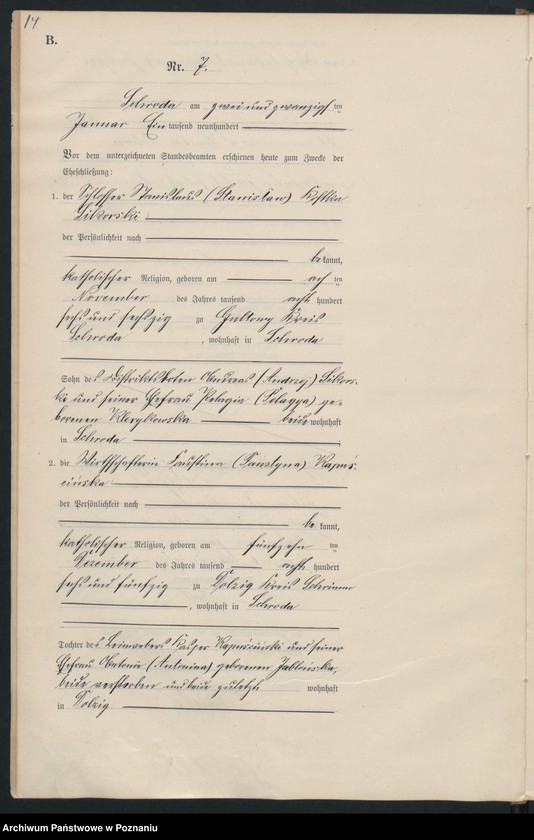 14
B.
Nr. 7.
Schroda am zwei und zwanzigsten
Januar Ein tausend neunhundert
Vor dem unterzeichneten Standesbeamten erschienen heute zum Zwecke der
Eheschließung:
1. der Schlosser Stanislaus (Stanisław) Kostka
Sikorski
der Persönlichkeit nach
bekannt,
katholischer Religion, geboren am acht ten
November des Jahres tausend acht hundert
sechs und sechszig zu Kreis
Schroda, wohnhaft in Schroda
Sohn des Distriktsboten Andreas (Andrzej) Sikors-
ki und seiner Ehefrau Pelagia (Pelagya) ge-
borenen Klerykowska beide wohnhaft
in Schroda
2. die Wirthschafterin Faustina (Faustyna) Kapuś-
cińska
der Persönlichkeit nach
bekannt,
katholischer Religion, geboren am fünfzehn ten
Dezember des Jahres tausend acht hundert
sechs und fünfzig zu Dolzig Kreis Schrimm
, wohnhaft in Schroda
Tochter des Leinwebers Kasper Kapuściński und seiner
Ehefrau Antonie (Antonina) geborenen Jabłońska,
beide verstorben und beide zuletzt wohnhaft
in Dolzig
Archiwum Państwowe w Poznaniu